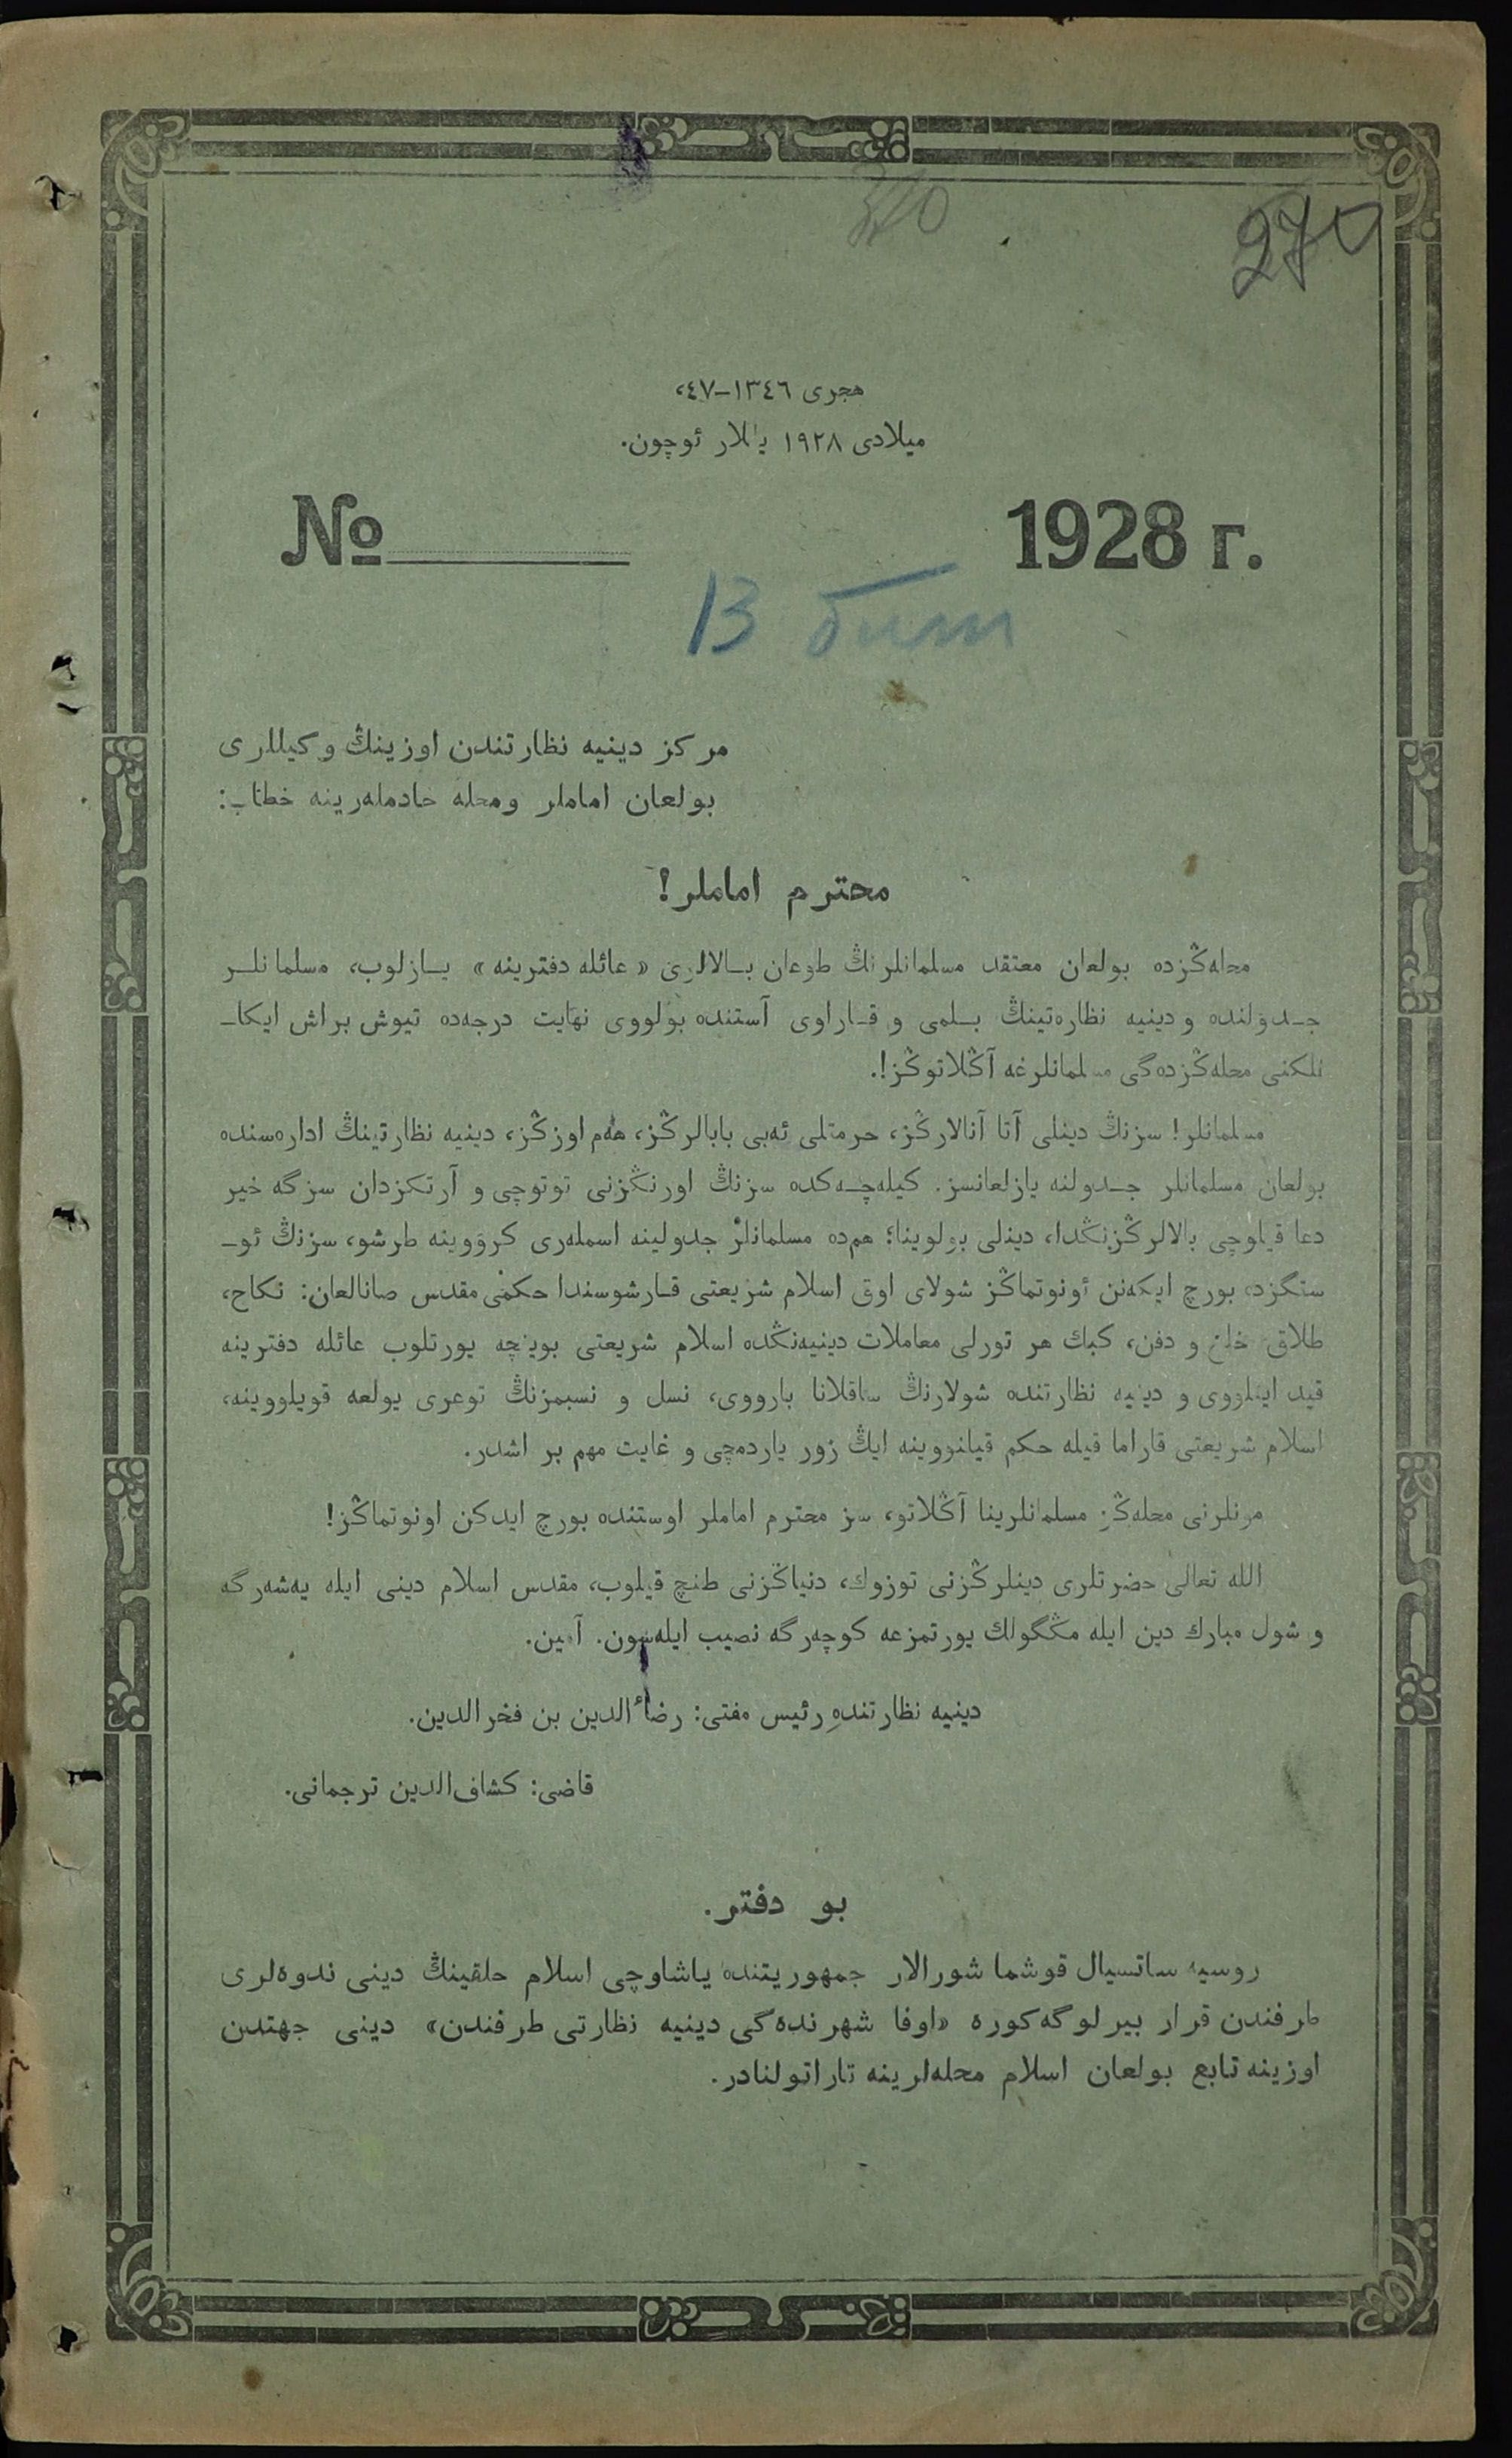 270
هجری ١٣٤٦–٤٧،
میلادی ١٩٢٨ یللار ئوچون.
№ 1928 г.
13 бит
مرکز دینیه نظارتندن اوزینڭ وکیللری
بولعان اماملر ومحله خادمله‌رینه خطاب:
محترم اماملر!
محله‌ڭزده بولعان معتقد مسلمانلرنڭ طوعان بـالالری «عائله دفترینه» یـازلوب، مسلمانلـر
جـدولنده و دینیه نظاره‌تینڭ بـلمی و قـاراوی آستنده بولووی نهایت درجه‌ده تیوش براش ایکا‌ـ
نلکنی محله‌ڭزده‌گی مسلمانلرغه آڭلاتوڭز!.
مسلمانلر! سزنڭ دینلی آتا آنالارڭز، حرمتلی ئه‌بی بابالرڭز، هه‌م اوزڭز، دینیه نظارتینڭ اداره‌سنده
بولعان مسلمانلر جـدولنه یازلعانسز. کیله‌چـه‌کده سزنڭ اورنڭزنی توتوچی و آرتکزدان سزگه خیر
دعا قیلوچی بالالرڭزنڭدا، دینلی بولوینا؛ هم‌ده مسلمانلر جدولینه اسمله‌ری کرووینه طرشو، سزنڭ ئوـ
ستگزده بورچ ایکه‌نن ئونوتماڭز شولای اوق اسلام شریعتی قـارشوسندا حکمی مقدس صانالعان: نکاح،
طلاق خلع و دفن، کبك هر تورلی معاملات دینیه‌نڭده اسلام شریعتی بوینچه یورتلوب عائله دفترینه
قید ایتلووی و دینیه نظارتنده شولارنڭ ساقلانا بارووی، نسل و نسبمزنڭ توعری یولعه قویلووینه،
اسلام شریعتی قاراما قیله حکم قیلنووینه ایڭ زور یاردمچی و غایت مهم بر اشدر.
مونلرنی محله‌ڭز مسلمانلرینا آڭلاتو، سز محترم اماملر اوستنده بورچ ایدکن اونوتماڭز!
الله تعالی حضرتلری دینلرڭزنی توزوك، دنیاڭزنی طنچ قیلوب، مقدس اسلام دینی ایله یه‌شه‌رگه
و شول مبارك دین ایله مڭگولك یورتمزعه کوچه‌رگه نصیب ایله‌سون. آمین.
دینیه نظارتنده رئیس مفتی: رضاءالدین بن فخرالدین.
قاضی: کشاف‌الدین ترجمانی.
بو دفتر.
روسیه ساتسیال قوشما شورالار جمهوریتنده یاشاوچی اسلام خلقینڭ دینی ندوه‌لری
طرفندن قرار بیرلوگه کوره «اوفا شهرنده‌گی دینیه نظارتی طرفندن» دینی جهتدن
اوزینه تابع بولعان اسلام محله‌لرینه تاراتولنادر.